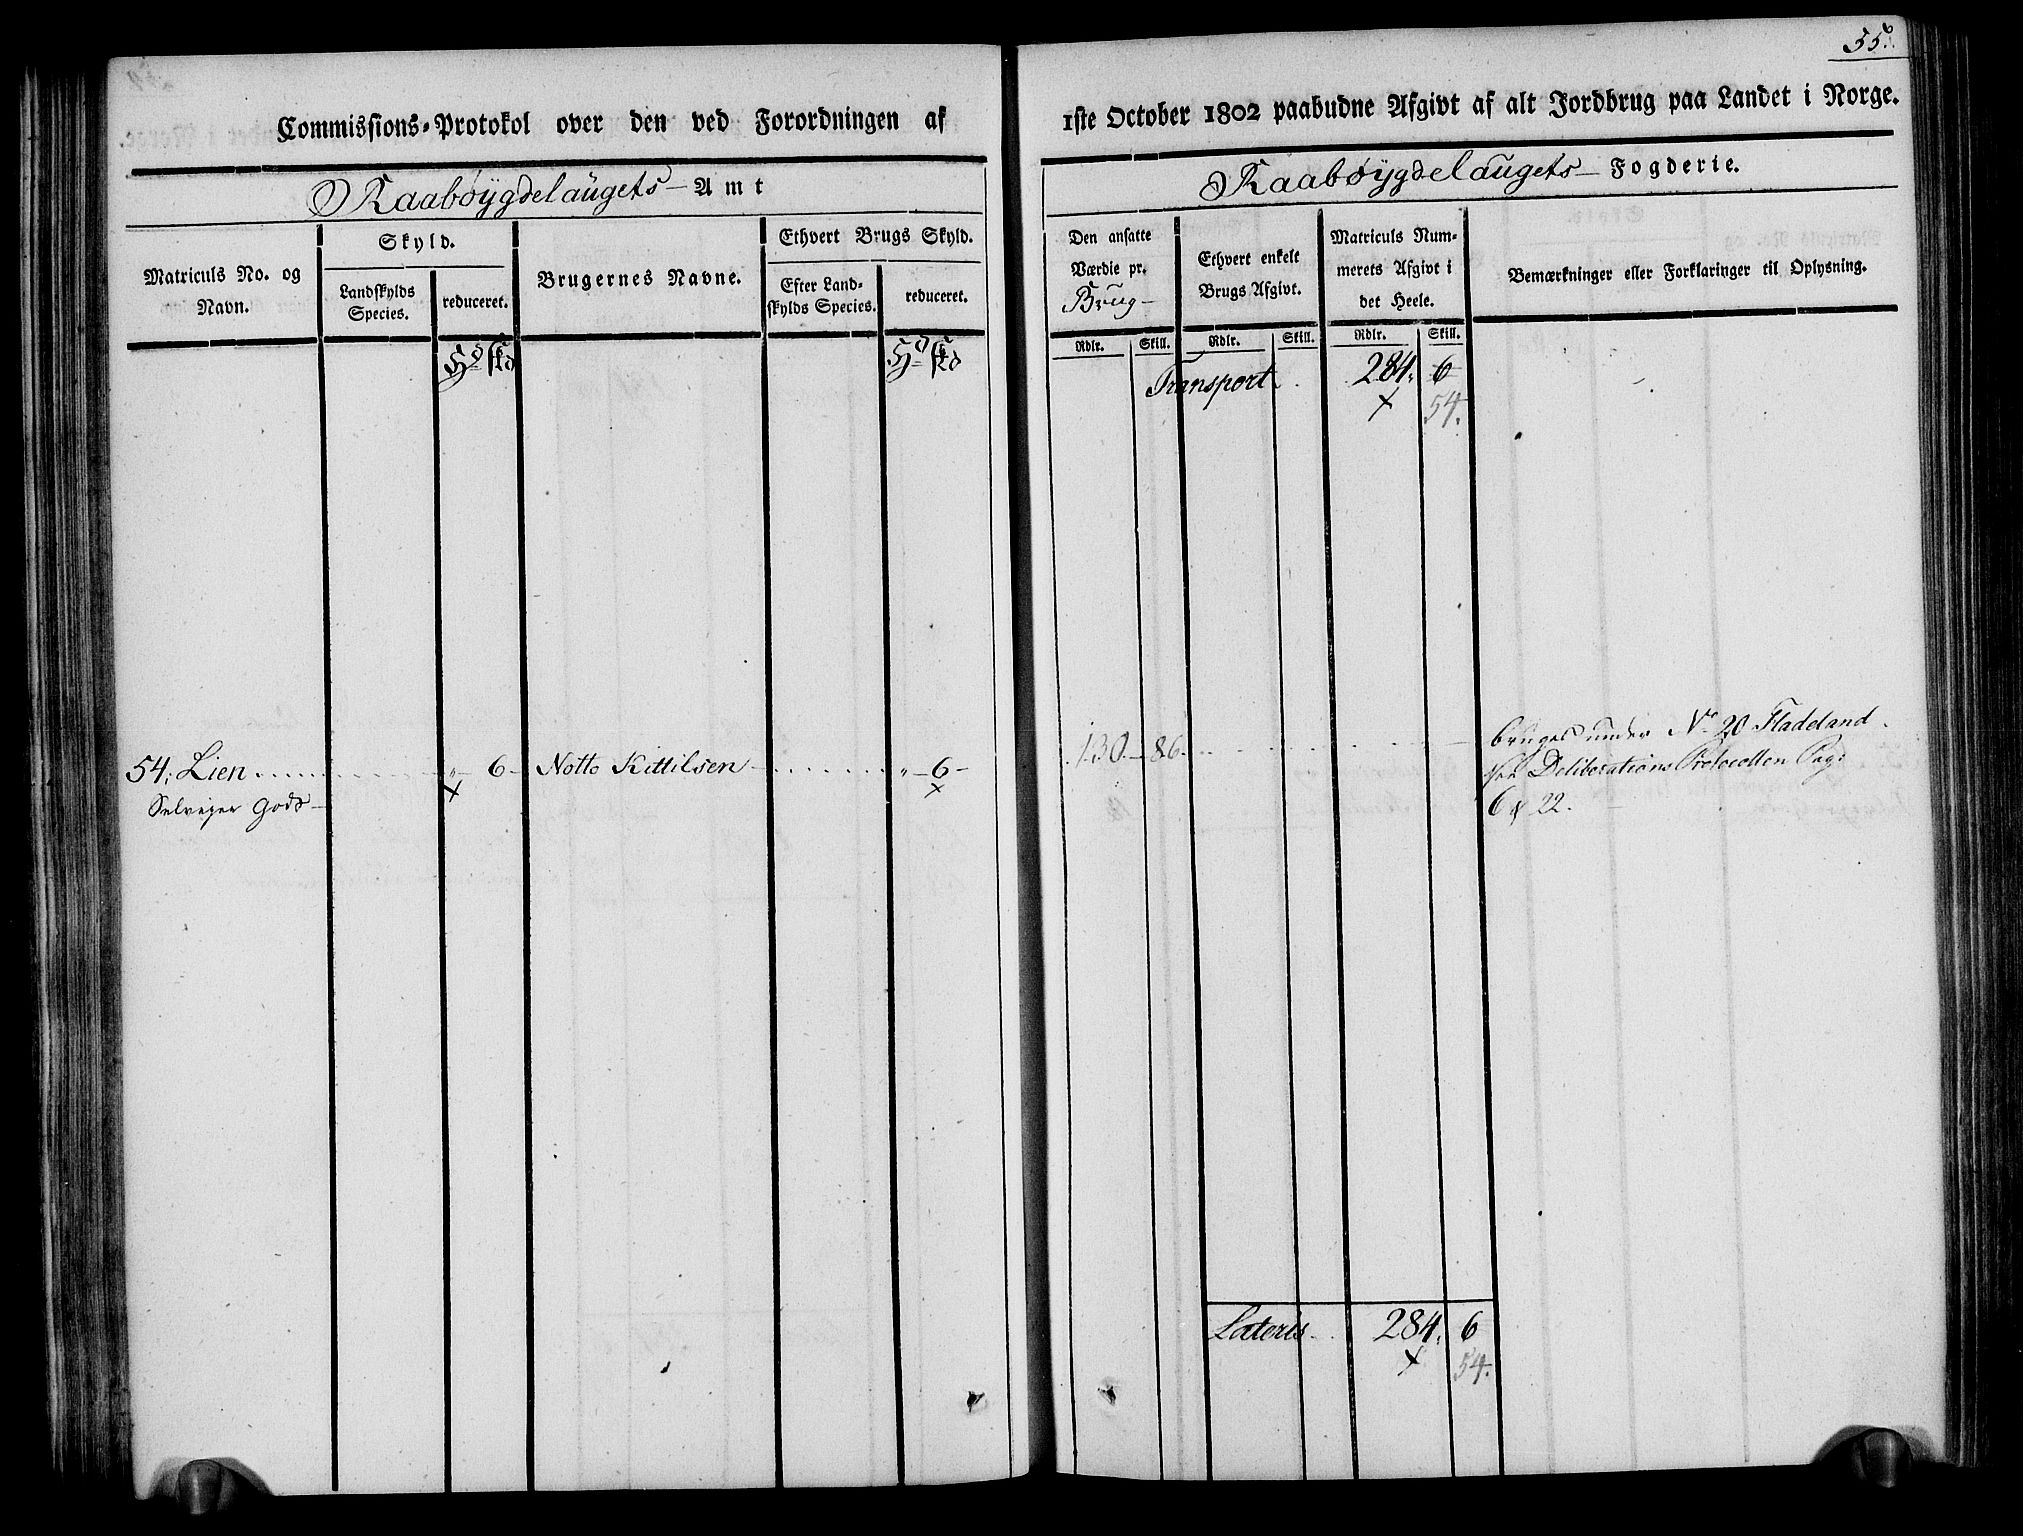 55.
Commissions-Protokol over den ved Forordningen af 1ste October 1802 paabudne Afgivt af alt Jordbrug paa Landet i Norge.
Raabøygdelaugets Amt
Raabøygdelaugets Fogderie.
Matriculs No. og Navn.
Skyld.
Landskylds Species.
reduceret.
Brugernes Navne.
Ethvert Brugs Skyld.
Efter Landskylds Species.
reduceret.
Den ansatte Værdie pr. Brug
Ethvert enkelt Brugs Afgivt.
Matriculs Nummerets Afgivt i det Heele.
Bemærkninger eller Forklaringer til Oplysning.
Rdlr. Skill. Rdlr. Skill. Rdlr. Skill.
Transport 284. 6
54.
54. Lien 6 Notto Kittilsen 6 130 86
Selveyer Gods
bruges under No. 20 Fladeland
Deliberations Protocollen Pag:
6 & 22.
Lateris 284. 6
54.